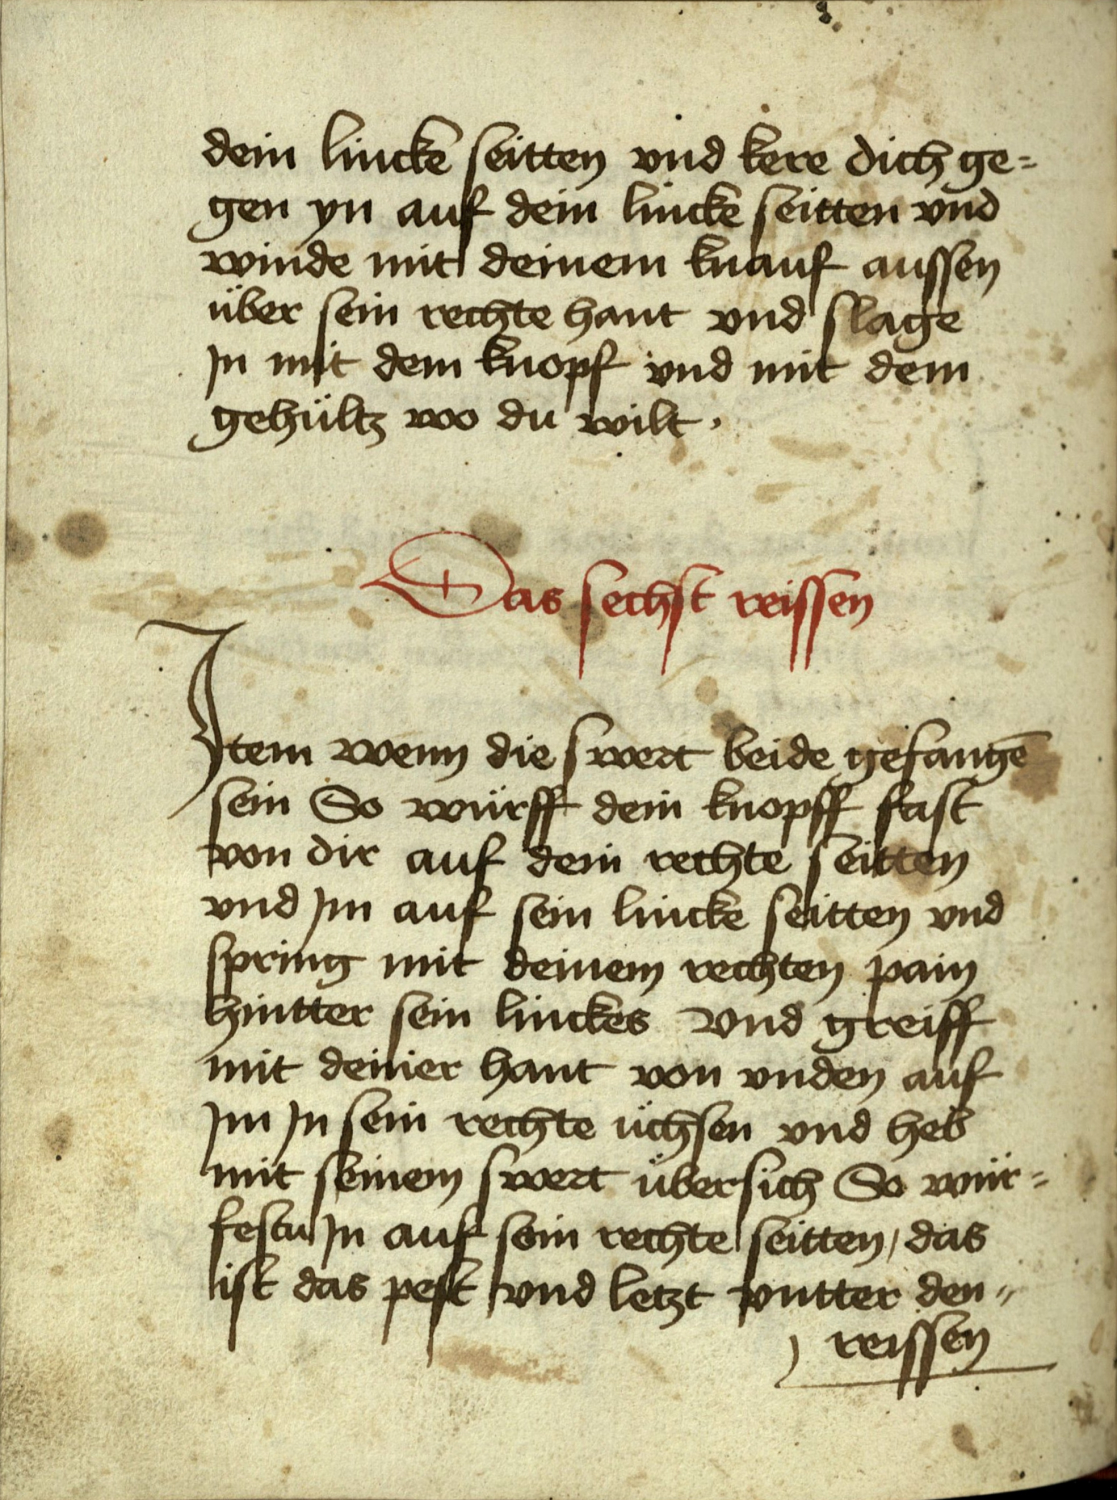 dein lincke seitten vnd kere dich ge=
gen yn auf dein lincke seitten vnd
winde mit deinem knauf aussen
über sein rechte hant vnd slage
Jn mit dem knopf vnd mit dem
gehültz wo du wilt ·
Das sechst reissen
Jtem wenn die swert beide gefangē
sein So würff dein knopff fast
von dir auf dein rechte seitten
vnd Jm auf sein lincke seitten vnd
spring mit deinem rechten pain
hintter sein linckes Vnd greiff
mit deiner hant von vnden auf
Jm Jn sein rechte üchsen vnd heb
mit seinem swert übersich So wür=
festu Jn auf sein rechte seitten / das
ist das pest vnd letzt vntter den=
reissen